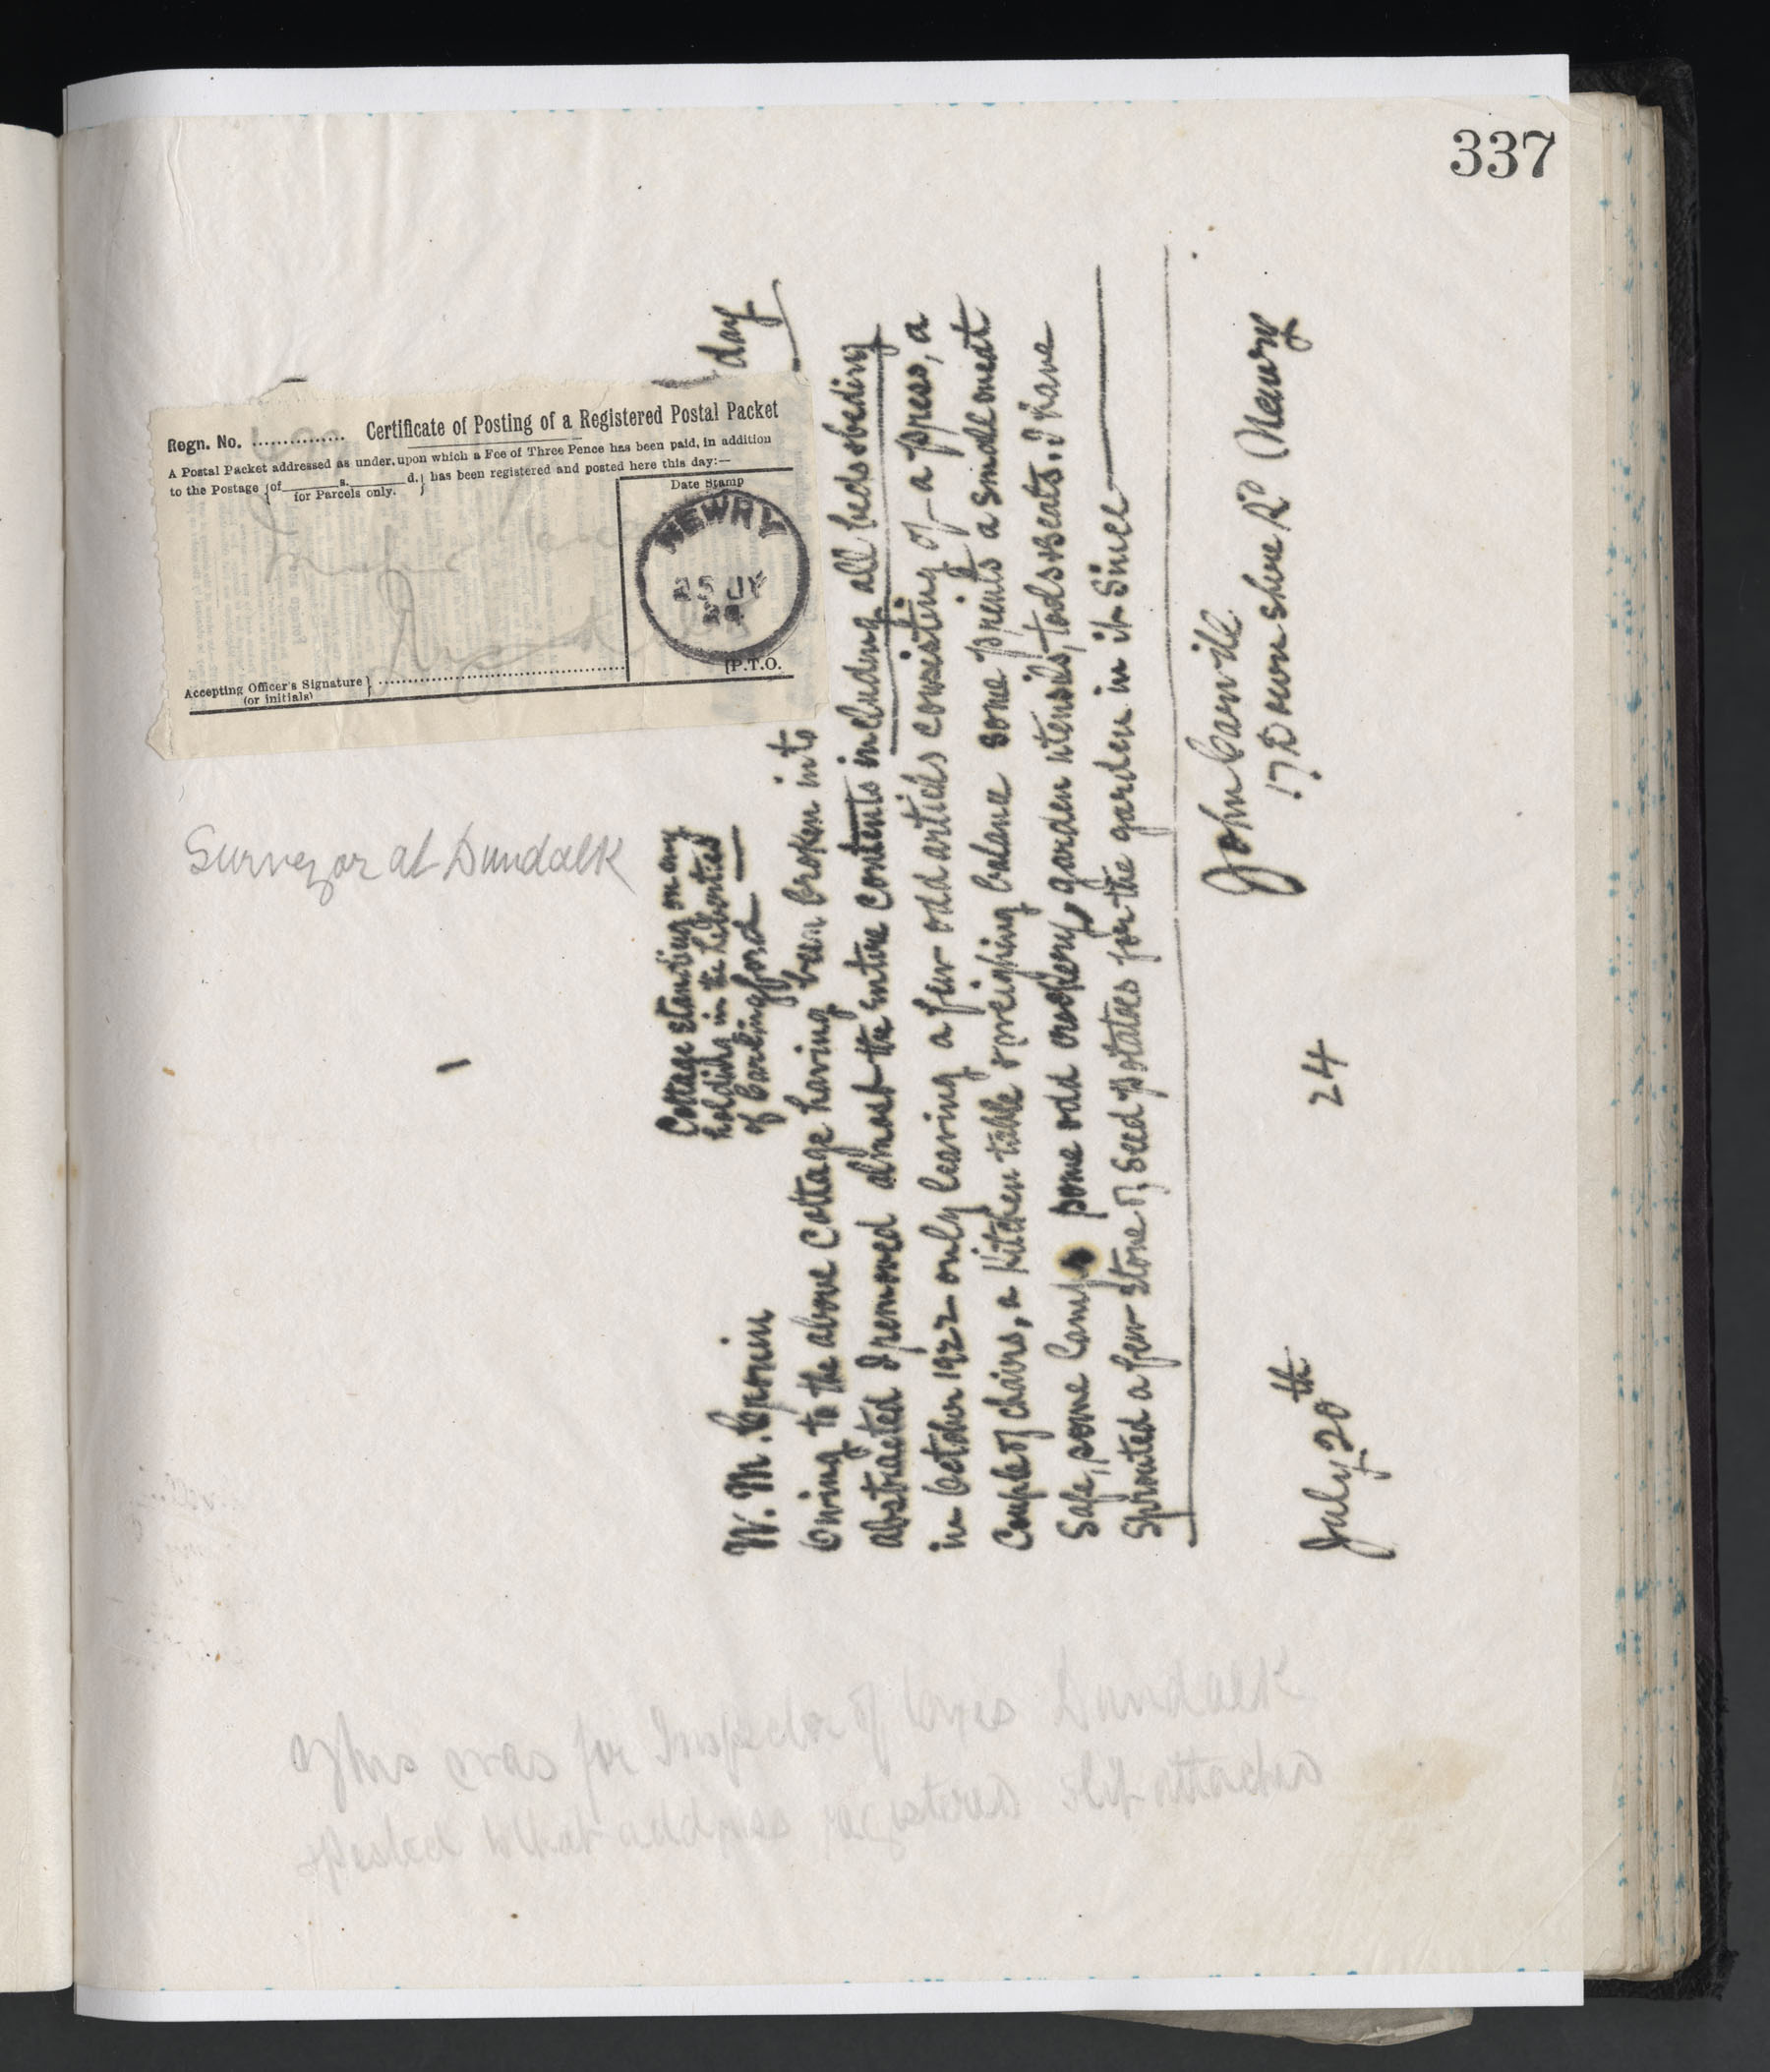 337
Regn. No. ............... Certificate of Posting of a Registered Postal Packet
A Postal Packet addressed as under, upon which a Fee of Three Pence has been paid, in addition
to the Postage {of ______s.______d. for Parcels only.} has been registered and posted here this day:—
Date Stamp
NEWRY
25 JY
Accepting Officer's Signature (or initials) } ...............
[P.T.O.
Surveyor at Dundalk
day
Cottage standing on my
holding in the Liberties
of Carlingford
W. M. Cronin
Owing to the above Cottage having been broken into
abstracted I removed almost the entire contents including all beds & beding
in October 1922 only leaving a few odd articles consisting of - a press, a
Couple of chairs, a Kitchen table & weighing balance some prints a small meat
Safe, some lamps some odd crockery, garden utensils, tools & seats. I have
Sprouted a few stone of seed potatoes for the garden in it since
John Carvill
17 Downshire Rd Newry
July 20th 24
This was for Inspector of Taxes Dundalk
Posted to that address registered slip attached